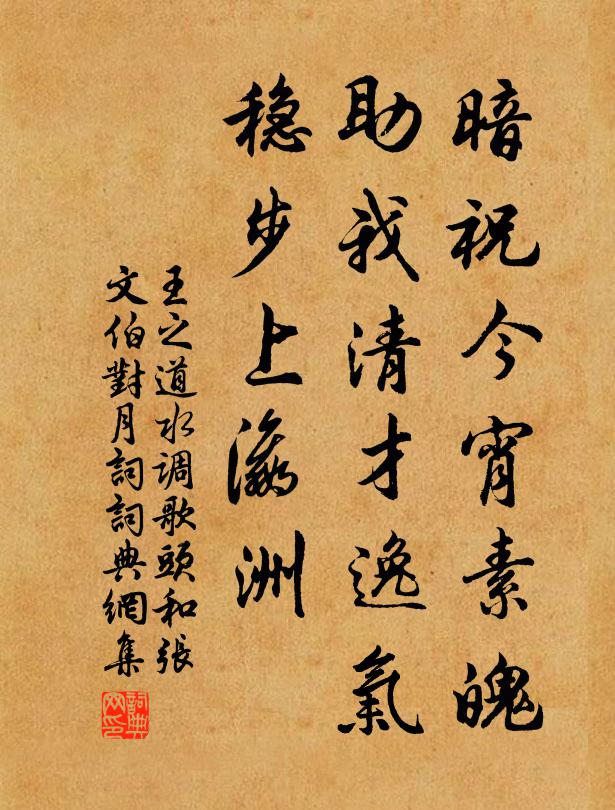 暗祝今宵素魄
助我清才逸氣
穩步上瀛洲
王之道水调歌頭和張
文伯對月詞詞典網集
詞典
网印